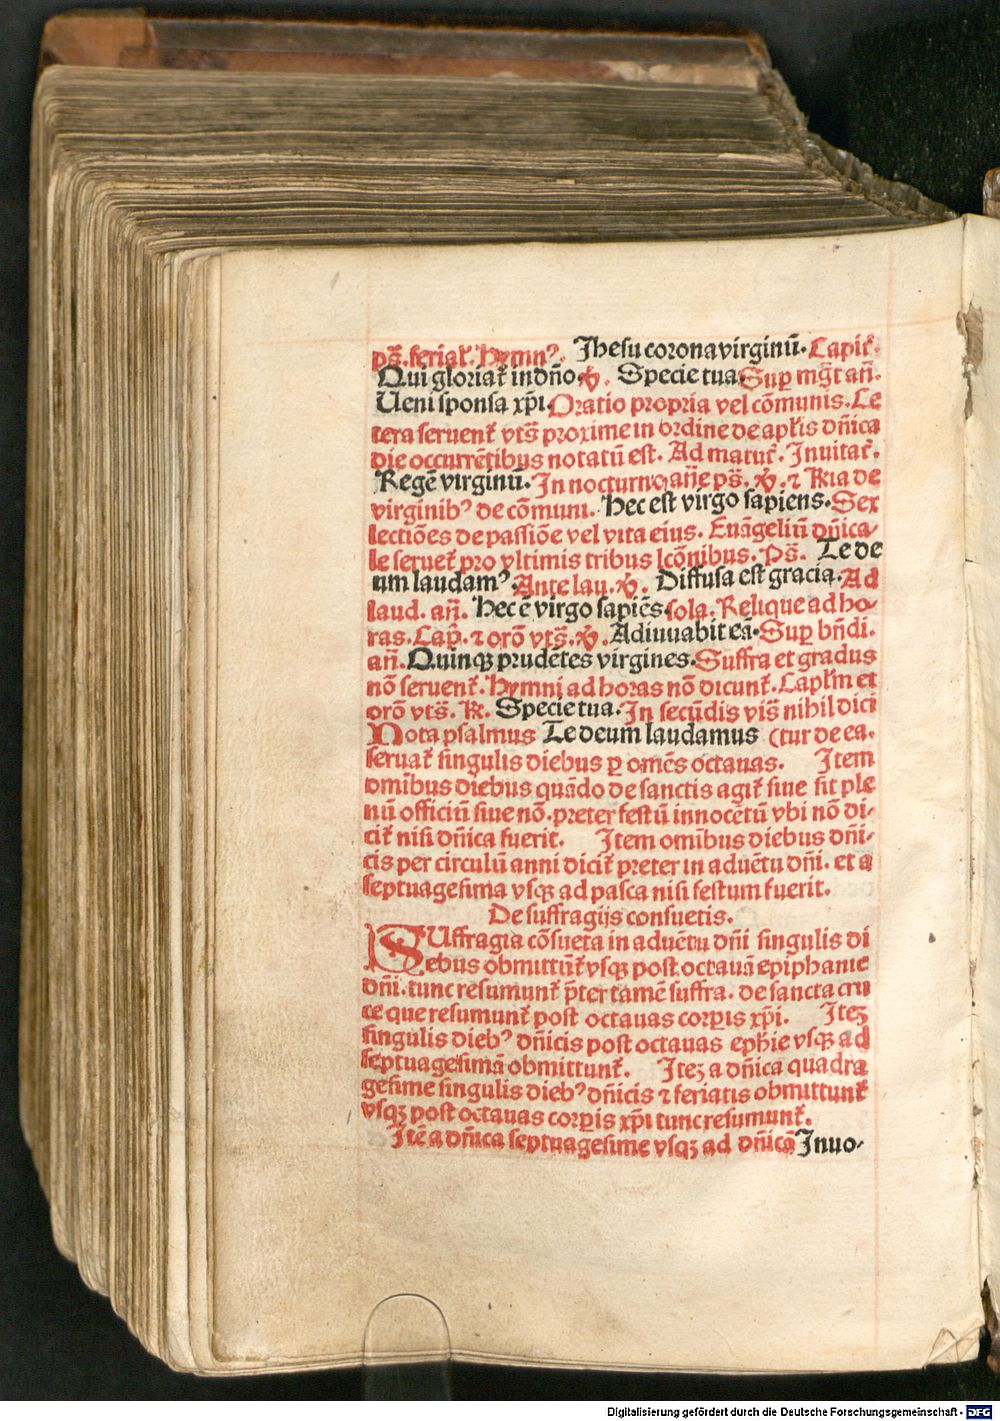 ps̄. ferial̄. Hymnꝰ. Jhesu corona virginū. Capit̄.
Qui gloriat̄ in dn̄o. ꝟ. Specie tua. Sup̄ mg̅t an̄.
Ueni sponsa xp̄i. Oratio propria vel cōmunis. Ce
tera seruent̄ vts̄ proxime in ordine de apl̄is dn̄ica
die occurrētibus notatū est. Ad matut̄. Inuitat̄.
Regē virginū. In nocturno an̄e ps̄. ꝟ. ⁊ R̄ia de
virginibꝰ de cōmuni. Hec est virgo sapiens. Sex
lectiōes de passiōe vel vita eius. Euāgeliū dn̄ica-
le seruet̄ pro vltimis tribus lcōnibus. Ps̄. Te de
um laudamꝰ. Ante lau. ꝟ. Diffusa est gracia. Ad
laud. an̄. Hec ē virgo sapiēs. sola. Relique ad ho-
ras. Cap̄. ⁊ orō vts̄. ꝟ. Adiuuabit eā. Sup̄ bn̄di.
an̄. Quinqꝫ prudētes virgines. Suffra et gradus
nō seruent̄. Hymni ad horas nō dicunt̄. Capl̄m et
orō vts̄. R̄. Specie tua. In secūdis vis̄ nihil dici
Nota psalmus Te deum laudamus (tur de ea.
seruat̄ singulis diebus ꝑ omēs octauas. Item
omībus diebus quādo de sanctis agit̄ siue sit ple
nū officiū siue nō. preter festū innocētū vbi nō di-
cit̄ nisi dn̄ica fuerit. Item omībus diebus dn̄i-
cis per circulū anni dicit̄ preter in aduētu dn̄i. et a
septuagesima vsqꝫ ad pasca nisi festum fuerit.
De suffragijs consuetis.
SUffragia cōsueta in aduētu dn̄i singulis di
ebus obmittūt̄ vsqꝫ post octauā epiphanie
dn̄i. tunc resumunt̄ p̄ter tamē suffra. de sancta cru
ce que resumunt̄ post octauas corꝑis xp̄i. Iteꝫ
singulis diebꝰ dn̄icis post octauas eph̄ie vsqꝫ ad
septuagesimā obmittunt̄. Iteꝫ a dn̄ica quadra
gesime singulis diebꝰ dn̄icis ⁊ feriatis obmittunt̄
vsqꝫ post octauas corꝑis xp̄i tunc resumunt̄.
Itē a dn̄ica septuagesime vsqꝫ ad dn̄icā Inuo-
Digitalisierung gefördert durch die Deutsche Forschungsgemeinschaft - DFG